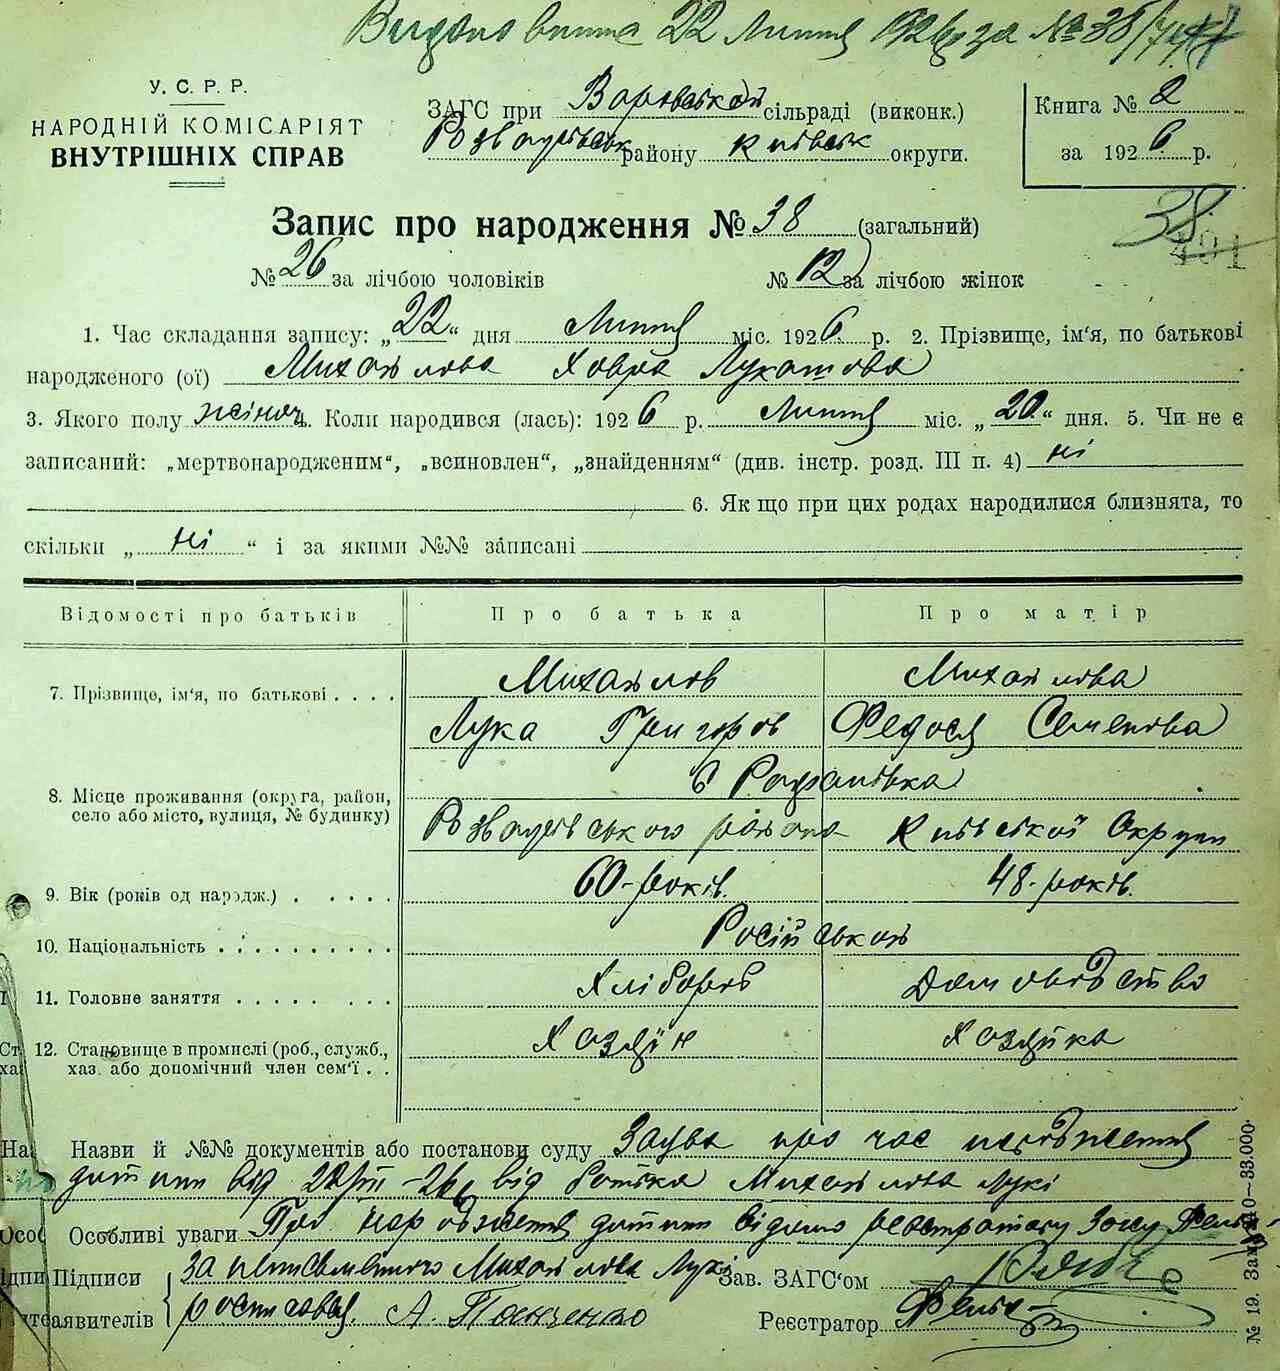 Видано випис 22 Лютня 1926 р за № 38/747
У. С. Р. Р.
НАРОДНІЙ КОМІСАРІЯТ
ВНУТРІШНІХ СПРАВ
ЗАГС при Воровській сільраді (виконк.)
Розважівськ району Київськ округи.
Книга № 2
за 1926 р.
Запис про народження № 38 (загальний)
38
491
№ 26 за лічбою чоловіків № 12 за лічбою жінок
1. Час складання запису: „22“ дня Лютня міс. 1926 р. 2. Прізвище, ім'я, по батькові
народженого (ої) Михайлова Ховра Лукашова
3. Якого полу жіноч 4. Коли народився (лась): 1926 р. Лютня міс. „20“ дня. 5. Чи не є
записаний: „мертвонародженим“, „всиновлен“, „знайденням“ (див. інстр. розд. III п. 4) ні
6. Як що при цих родах народилися близнята, то
скільки „ні“ і за якими №№ записані
Відомості про батьків Про батька Про матір
7. Прізвище, ім'я, по батькові Михайлов Михайлова
Лука Григоров Федося Семенова
8. Місце проживання (округа, район, село або місто, вулиця, № будинку) с
Розважівського района Київської Округи
9. Вік (років од народж.) 60-років. 48-років.
10. Національність Російської
11. Головне заняття Хлібороб Домоводство
12. Становище в промислі (роб., служб., хаз. або допомічний член сем'ї Хозяїн Хозяйка
Назви й №№ документів або постанови суду Заява про час народження
дитини від 22/II-26 р від батька Михайлова Луки
Особливі уваги Про народження дитини відомо реєстратору Загсу
Підписи за неписьменного Михайлова Луки Зав. ЗАГС'ом
заявителів росписався А. Панченко Реєстратор
№ 19. Зам. 33.000